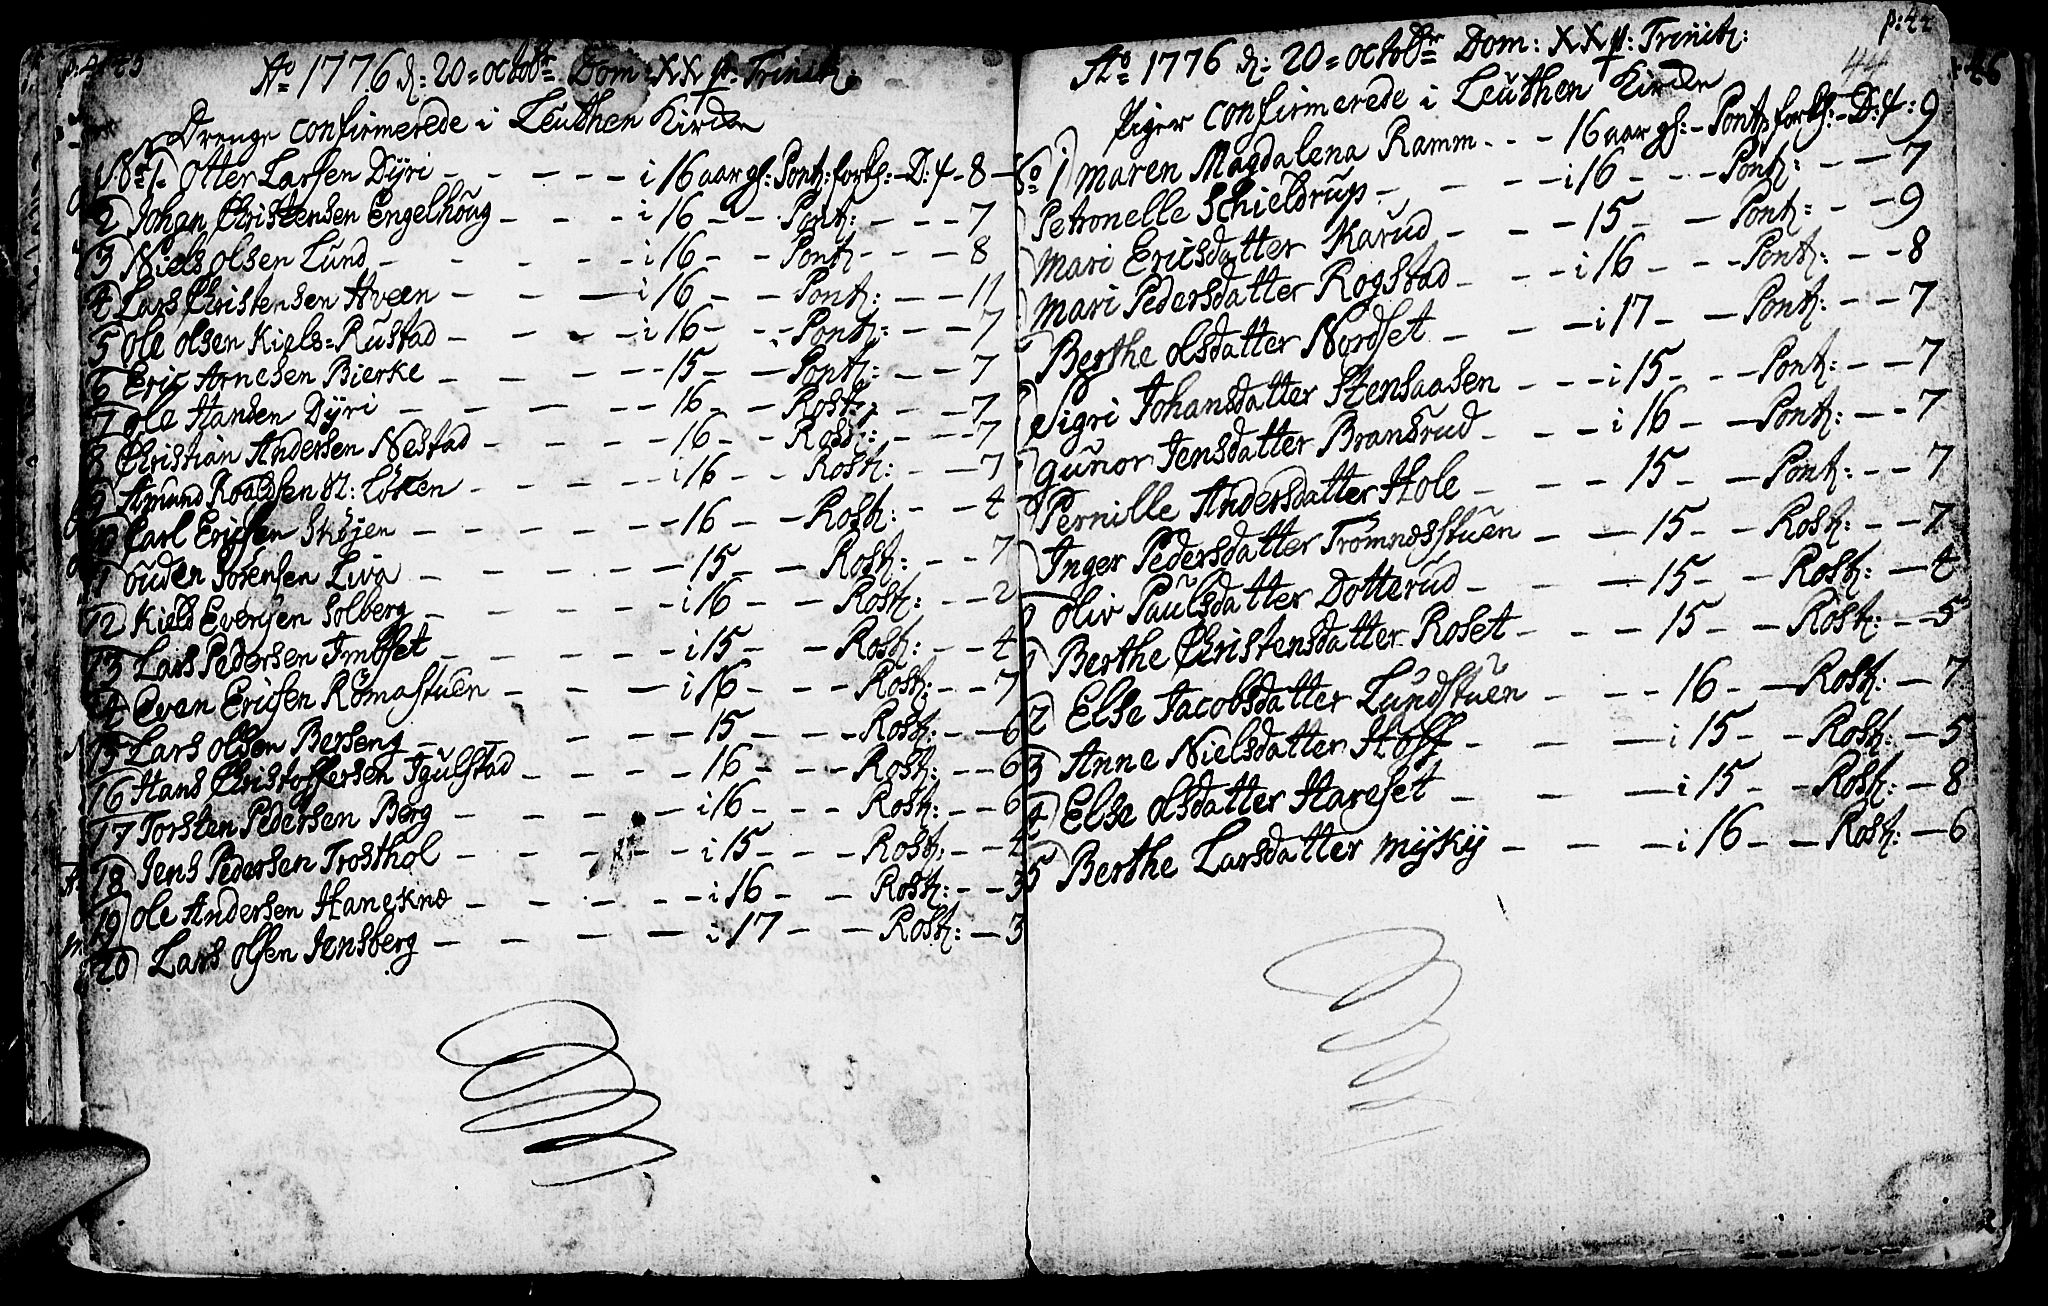 Ao 1776 d: 20= octobr Dom: XX p: Trinit:
Drenge confirmerede i Leuthen Kirche
No 1. Otter Larsen Dÿri - - - - - i 16 aar gl: Pont: forkl: - D: 4 - 8
2 Johan Christensen Engelhoug - - - i 16 - - Pont: - - - 7
3 Niels olsen Lund - - - - - i 16 - - Pont - - - 8
4 Lars Christensen Hveen - - - i 16 - - Pont: - - 11
5 Ole olsen Kiels=Rustad - - - - i 16 - - Pont: - - 7
6 Eric Arnesen Bierke - - - - - 15 - - Pont: - - 7
7 ole Hansen Dÿri - - - - - 16 - - Rosk: - - 7
8 Christian Andersen Nestad - - - - 16 - - Rosk: - - - 7
9 Amund Roaldsen Løken - - - - i 16 - - Rosk: - - 7
Carl Ericsen Skøjen - - - - - 16 - - Rosk: - - 4
11 ouden Sørensen Liva - - - - - 15 - - Rosk: - - 7
12 Kield Evensen Solberg - - - - i 16 - - Rosk: - - 2
13 Lars Pedersen Imbset - - - - i 15 - - Rosk: - - 4
14 Even Ericsen Rømastuen - - - i 16 - - - Rosk: - - 7
15 Lars olsen Berseng - - - - - 15 - - - Rosk: - - 6
16 Hans Christoffersen Igulstad - - - - 16 - - - Rosk: - - 6
17 Torsten Pedersen Berg - - - - - i 16 - - - Rosk: - - 6
18 Jens Pedersen Trosthol - - - - i 15 - - - Rosk: - - 4
19 ole Andersen Haneknæ - - - - - i 16 - - Rosk: - - 3
20 Lars olsen Jensberg - - - - i 17 - - Rosk: - 3
p: 44
44
Ao 1776 d: 20= octobr Dom: XX p: Trinit:
Piger confirmerede i Leuthen Kirche
No 1 Maren Magdalena Ramm - - - 16 aar gl: - Pont: forkl: - D: 4: 9
Petronelle Schieldrup - - - i 16 - - - Pont: - - 7
Mari Ericsdatter Karud - - - 15 - - Pont: - - 9
Mari Pedersdatter Rogstad - - - i 16 - - - Pont: - - 8
Berthe olsdatter Nordset - - - i 17 - - Pont: - - 7
Sigri Johansdatter Stensaasen - - - i 15 - - - Pont: - - 7
Gunor Jensdatter Brandrud - - - i 16 - - Pont: - - 7
Pernille Andersdatter Hole - - - 15 - - Pont: - - 7
Inger Pedersdatter Trømnæsstuen - - 15 - - Rosk: - - 7
oliv Paulsdatter Dotterud - - - 15 - - Rosk: - 4
Berthe Christensdatter Roset - - - 15 - - Rosk: - - 5
2 Else Jacobsdatter Lundstuen - - - 16 - - Rosk: - 7
3 Anne Nielsdatter Hoff - - - i 15 - - Rosk: - 5
4 Else olsdatter Hareset - - - i 15 - - Rosk: - 8
5 Berthe Larsdatter Mÿkÿ - - - i 16 - - Rosk: - 6